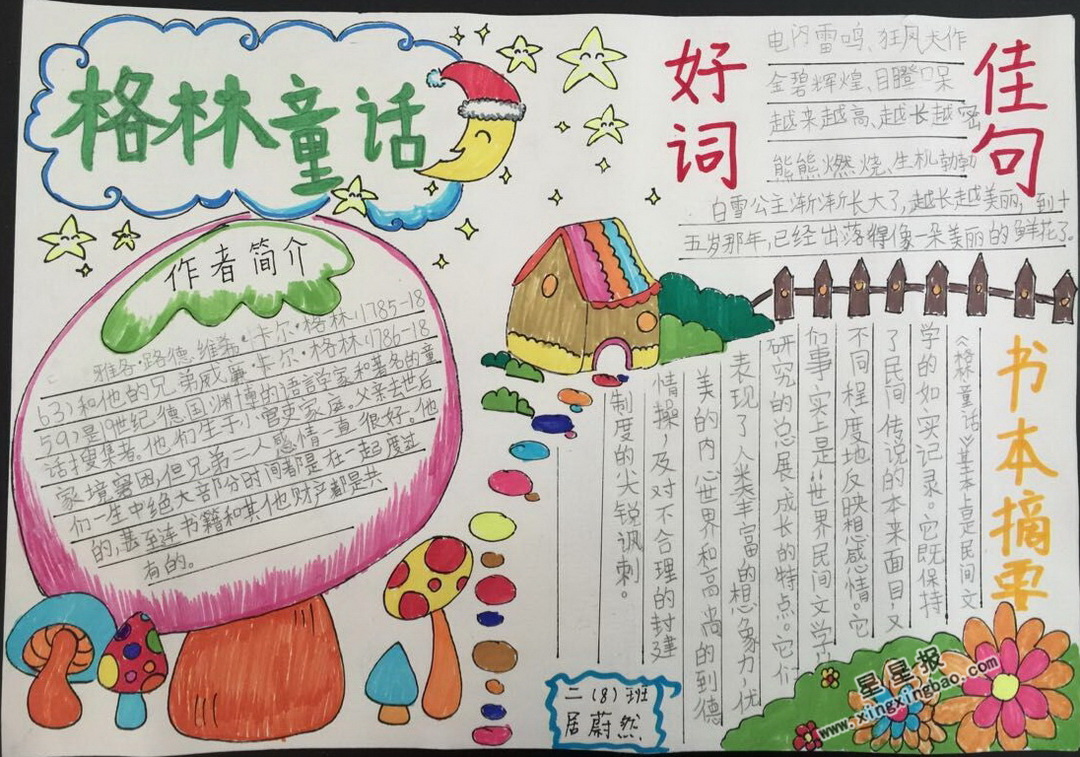 格林童话
作者简介
雅各·路德维希·卡尔·格林(1785-18
63)和他的兄弟威廉·卡尔·格林(1786-18
59)是19世纪德国渊博的语言学家和著名的童
话搜集者。他们生于小官吏家庭。父亲去世后
家境窘困,但兄弟二人感情一直很好。他
们一生中绝大部分时间都是在一起度过
的,甚至连书籍和其他财产都是共
有的。
好词
佳句
电闪雷鸣、狂风大作
金碧辉煌、目瞪口呆
越来越高、越长越密
熊熊燃烧、生机勃勃
白雪公主渐渐长大了,越长越美丽,到十
五岁那年,已经出落得像一朵美丽的鲜花了。
书本摘要
《格林童话》基本上是民间文
学的如实记录。它既保持
了民间传说的本来面目,又
不同程度地反映想感情。它
们事实上是"世界民间文学
研究的总展成长的特点。它们
表现了人类丰富的想象力,优
美的内心世界和高尚的到德
情操,及对不合理的封建
制度的尖锐讽刺。
二(8)班
居蔚然
星星报
www.xingxingbao.com